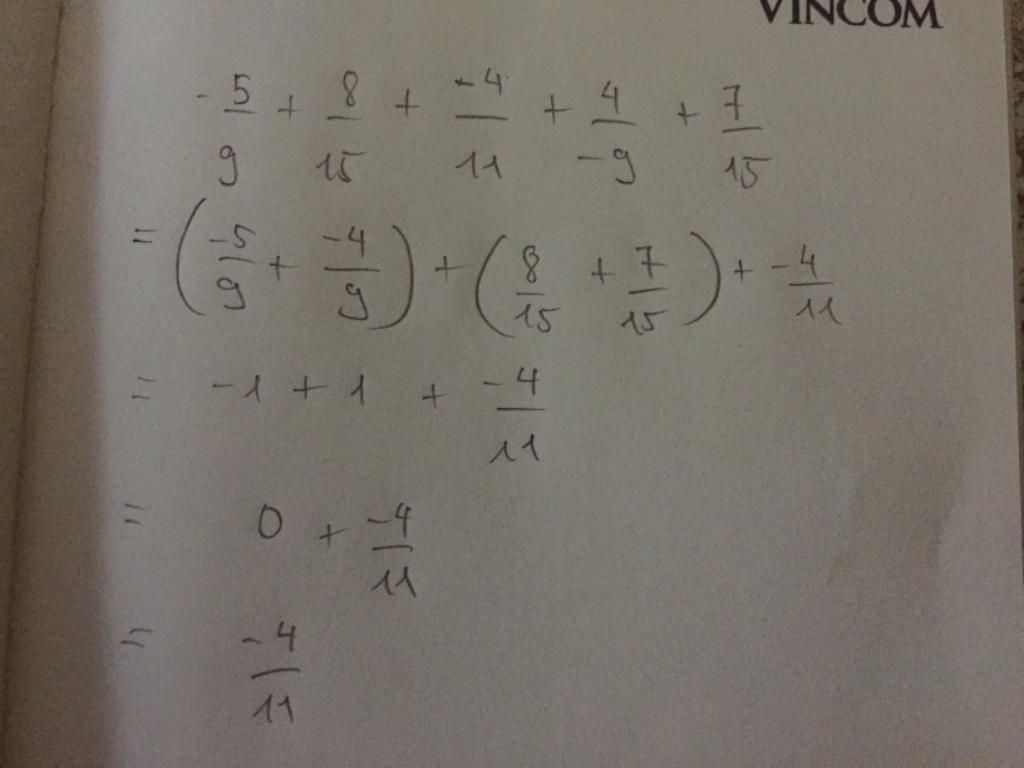 VINCOM
-5/9 + 8/15 + -4/11 + 4/-9 + 7/15
= (-5/9 + -4/9) + (8/15 + 7/15) + -4/11
= -1 + 1 + -4/11
= 0 + -4/11
= -4/11